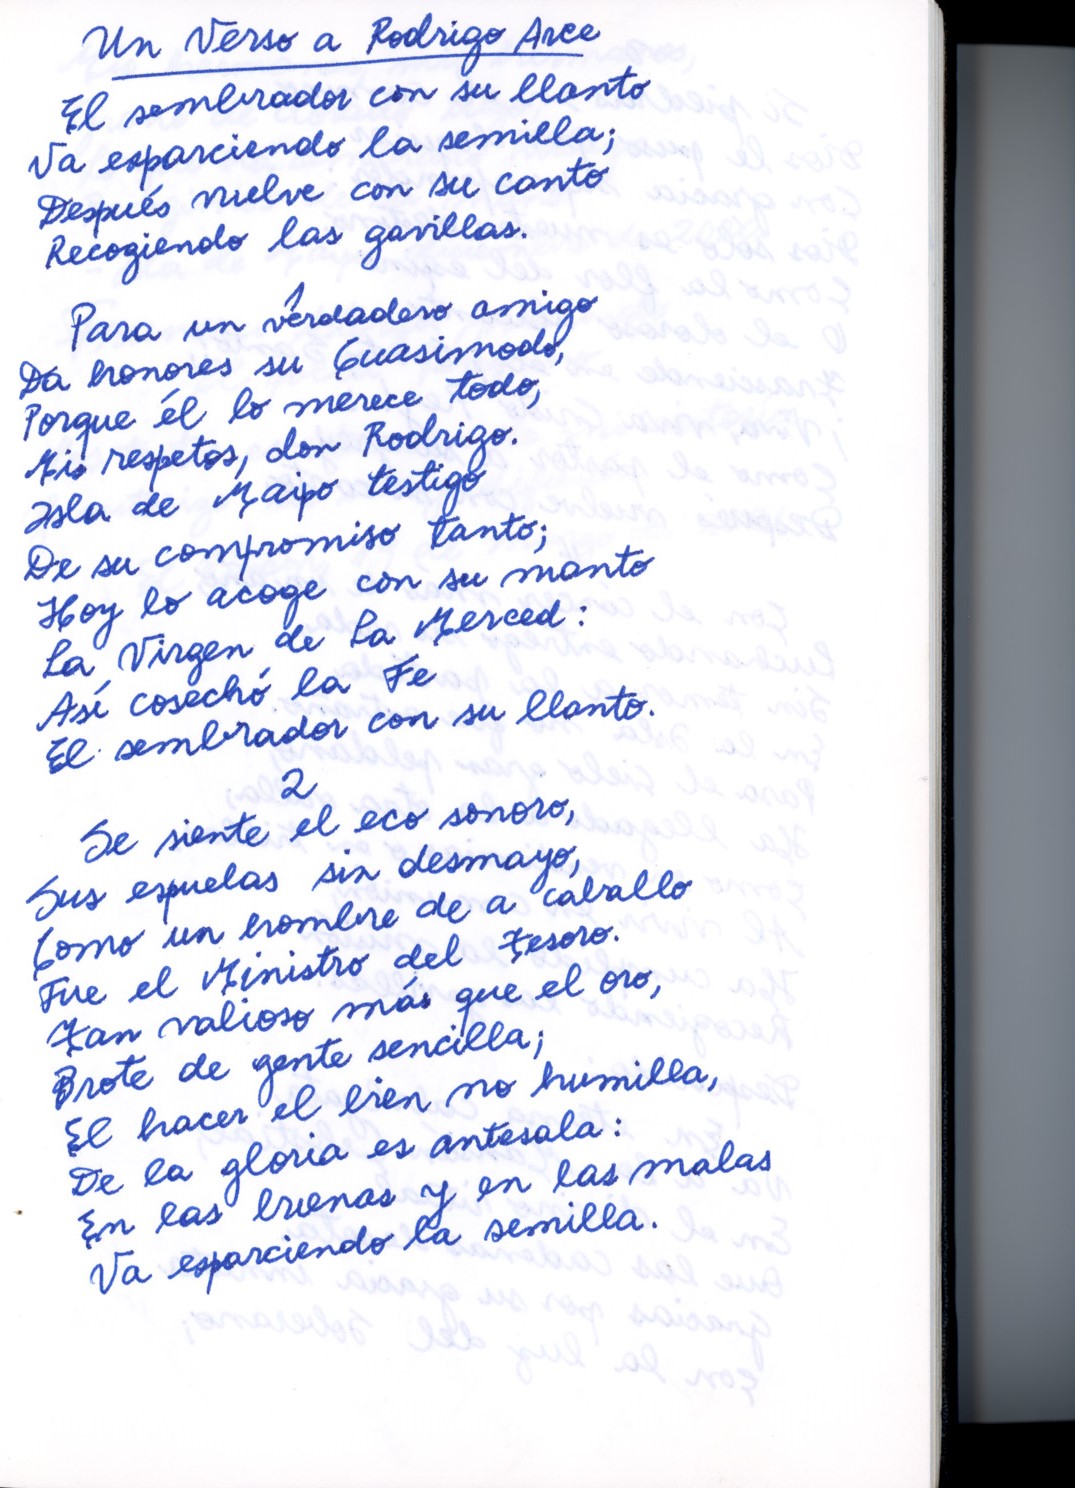 Un Verso a Rodrigo Arce
El sembrador con su llanto
Va esparciendo la semilla;
Después vuelve con su canto
Recogiendo las gavillas.
1
Para un verdadero amigo
Da honores su Cuasimodo,
Porque él lo merece todo,
Mis respetos, don Rodrigo.
Isla de Maipo testigo
De su compromiso tanto;
Hoy lo acoge con su manto
La Virgen de La Merced:
Así cosechó la Fe
El sembrador con su llanto.
2
Se siente el eco sonoro,
Sus espuelas sin desmayo,
Como un hombre de a caballo
Fue el Ministro del Tesoro.
Tan valioso más que el oro,
Brote de gente sencilla;
El hacer el bien no humilla,
De la gloria es antesala:
En las buenas y en las malas
Va esparciendo la semilla.